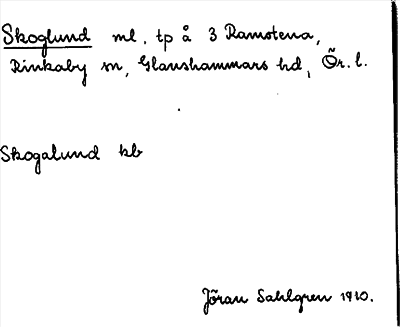 Skoglund ml. tp å 3 Ramstena,
Rinkaby sn, Glanshammars hd, Ör. l.
Skogalund kb
Jöran Sahlgren 1910.